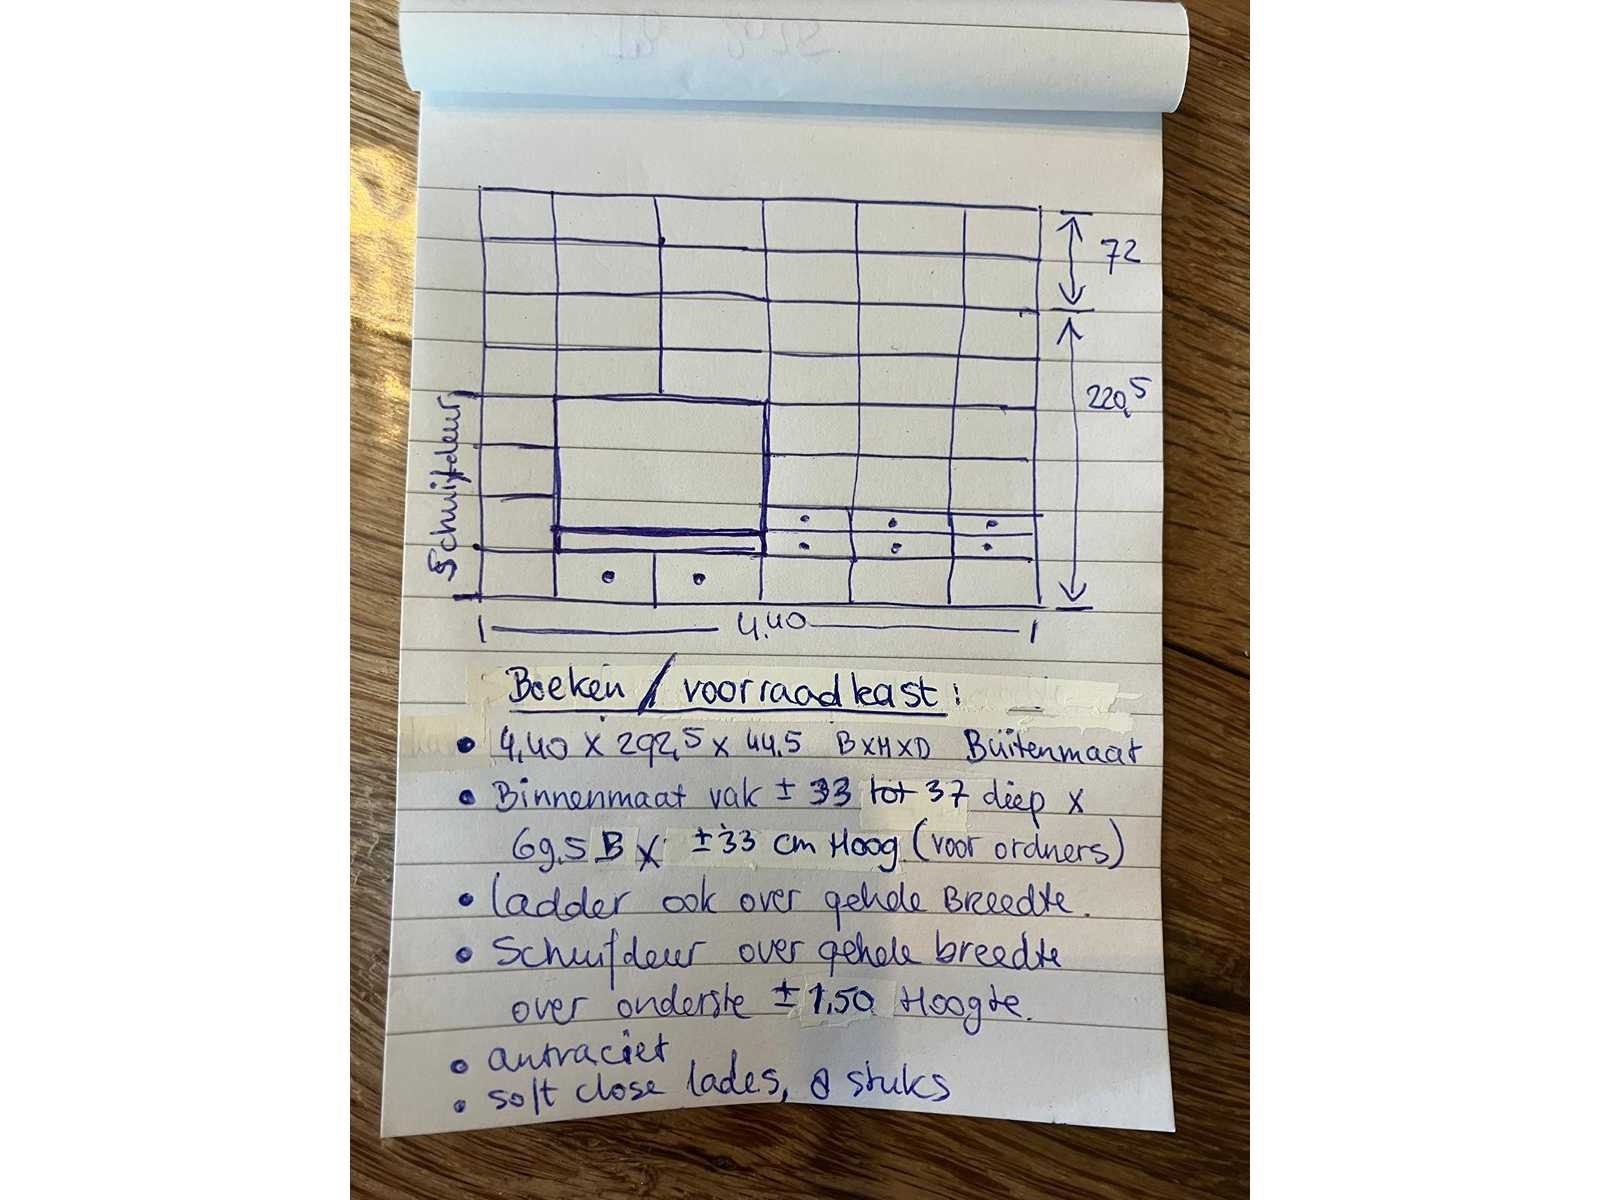 72
220,5
Schuifdeur
4,40
Boeken / voorraadkast:
• 4,40 x 292,5 x 44.5 BxHxD Buitenmaat
• Binnenmaat vak ± 33 tot 37 diep x
69.5 B x ±33 cm Hoog (voor ordners)
• ladder ook over gehele Breedte.
• Schuifdeur over gehele breedte
over onderste ± 1,50 Hoogte.
• antraciet
• soft close lades, 8 stuks